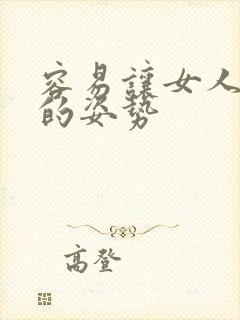 容易讓女人
的姿勢
高登